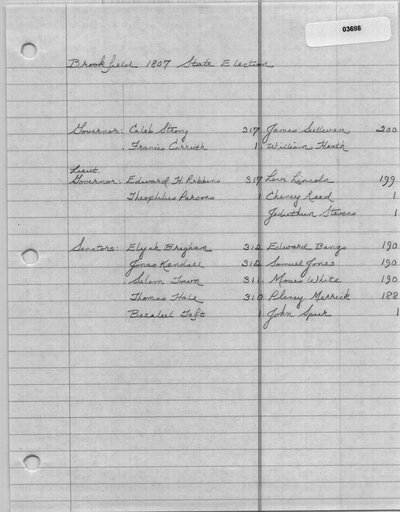 03698
Brookfield 1807 State Election
Governor: Caleb Strong 317 James Sullivan 200
Francis Carruth 1 William Heath
Lieut.
Governor: Edward H. Robbins 317 Levi Lincoln 199
Theophilus Parsons 1 Cheney Reed 1
Jeduthun Stevens 1
Senators: Elijah Brigham 312 Edward Bangs 190
Jonas Kendall 312 Samuel Jones 190
Salem Town 311 Moses White 190
Thomas Hale 310 Pliny Merrick 188
Bezaleel Taft 1 John Spurr 1